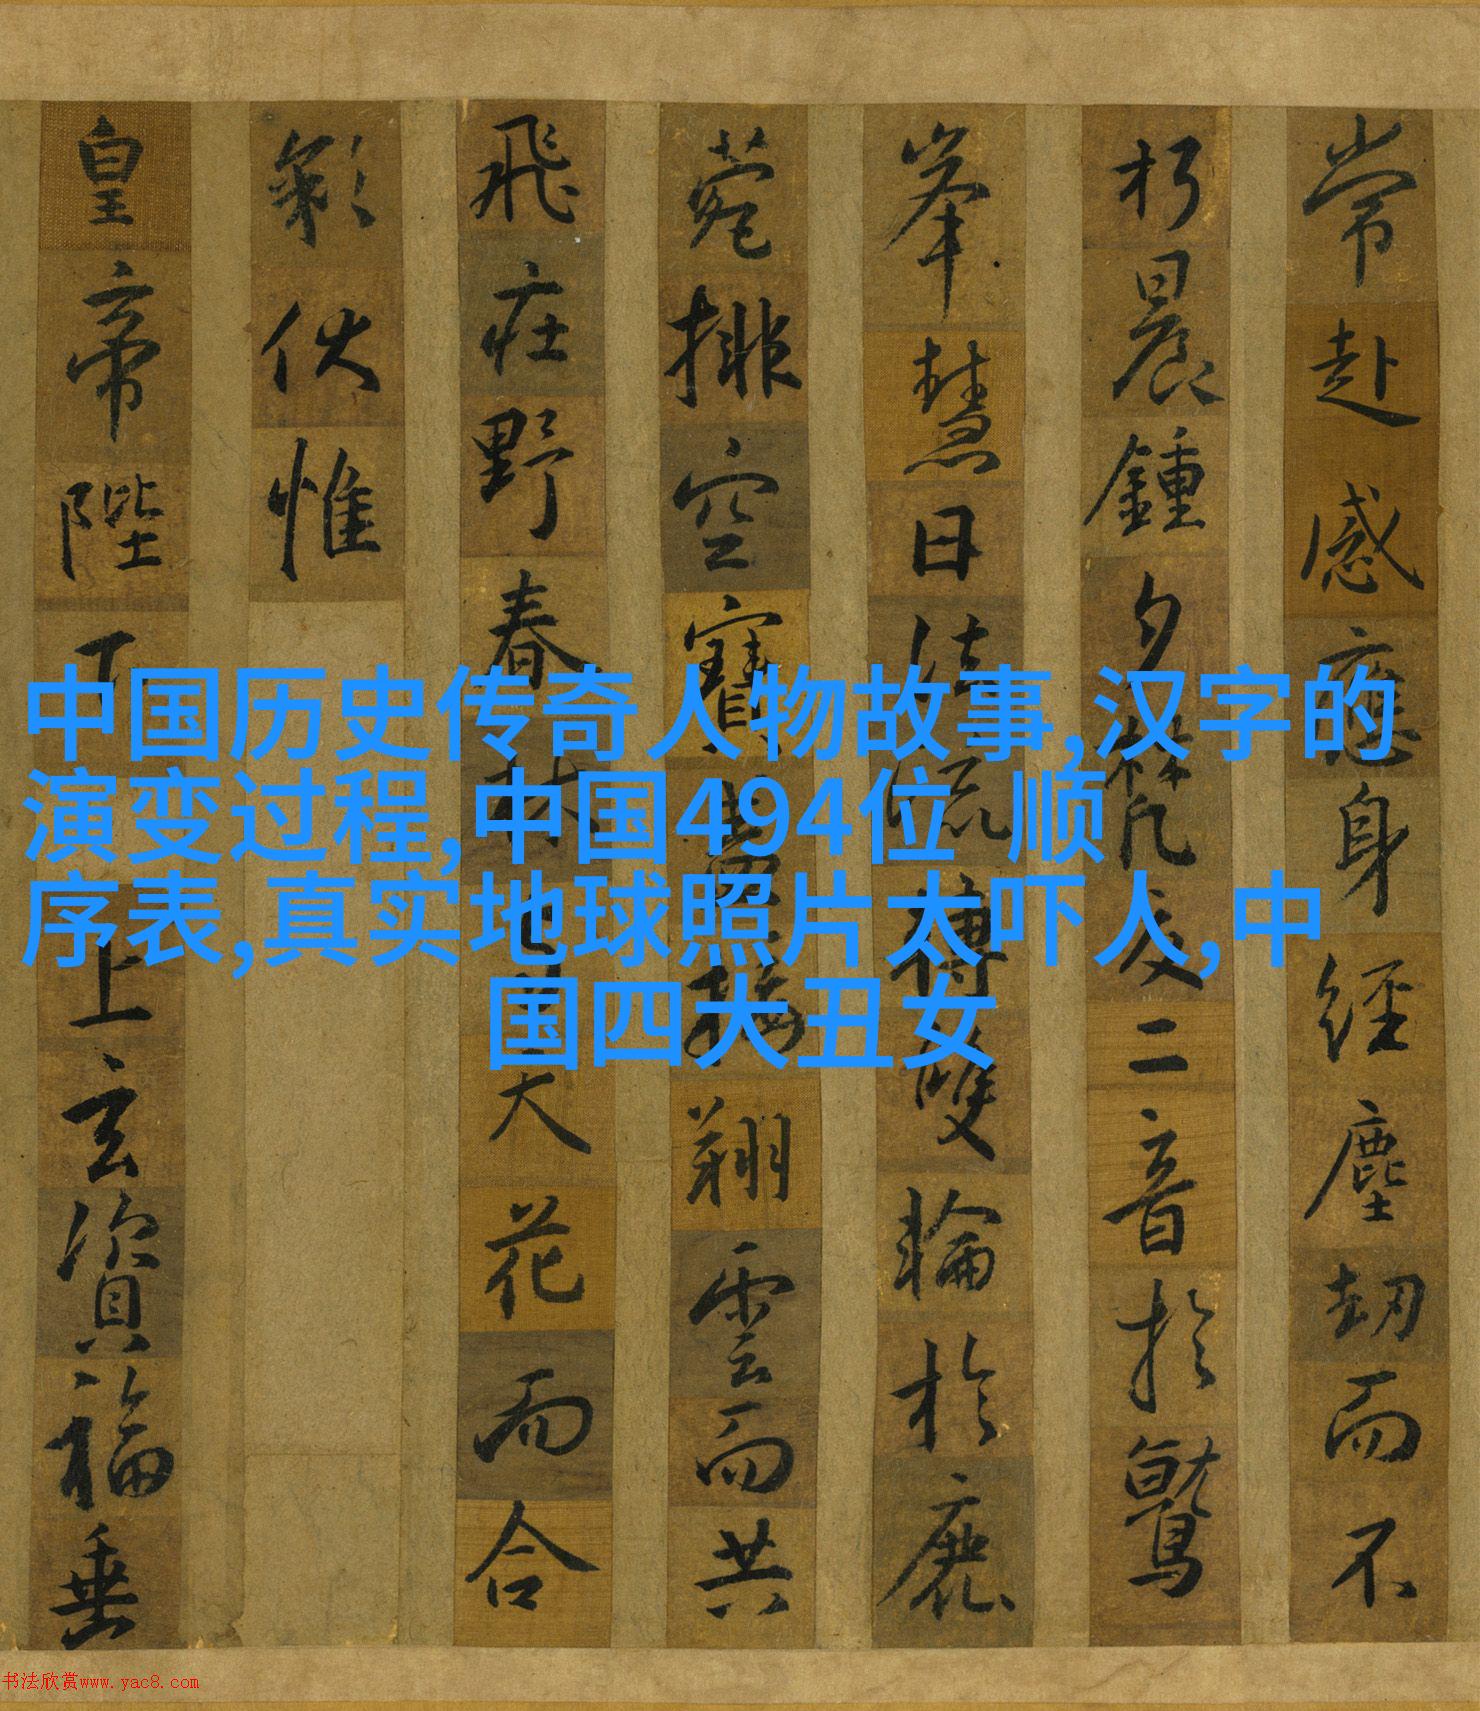 常赴感應身經塵劫而不
朽晨鍾夕梵交二音於鷲
峯慧日法流轉雙輪於鹿
菀排空寶蓋接翔雲而共
飛莊野春林與天花而合
彩伏惟
皇帝陛下上玄資福垂
中国历史传奇人物故事,汉字的
演变过程,中国494位 顺
序表,真实地球照片太吓人,中
国四大丑女
书法欣赏www.yac8.com